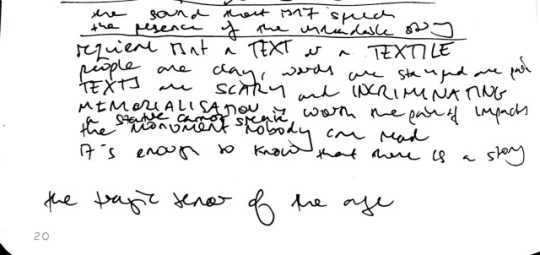 the sound that isn't speech
the presence of the unreadable story
requiem Mint a TEXT as a TEXTILE
people are clay, words are stamped are
TEXTS are SCARY and INCRIMINATING
MEMORIALISATION is worth the pain of impacts
a statue cannot speak
the monument nobody can read
it's enough to know that there is a story
the tragic tenor of the age
20